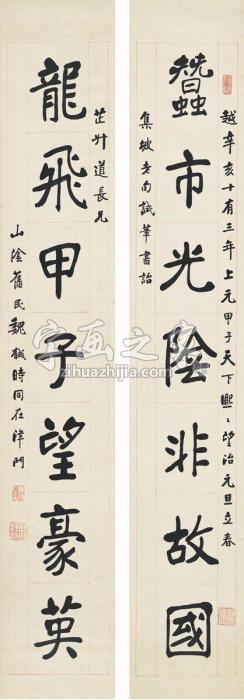 越辛亥十有三年上元甲子天下熙熙望治元旦立春
蠶市光陰非故國
集坡老句誠華書詒
芷升道長兄
龍飛甲子望豪英
山陰舊民魏戫時同在津門
字画之家
zihuazhijia.com